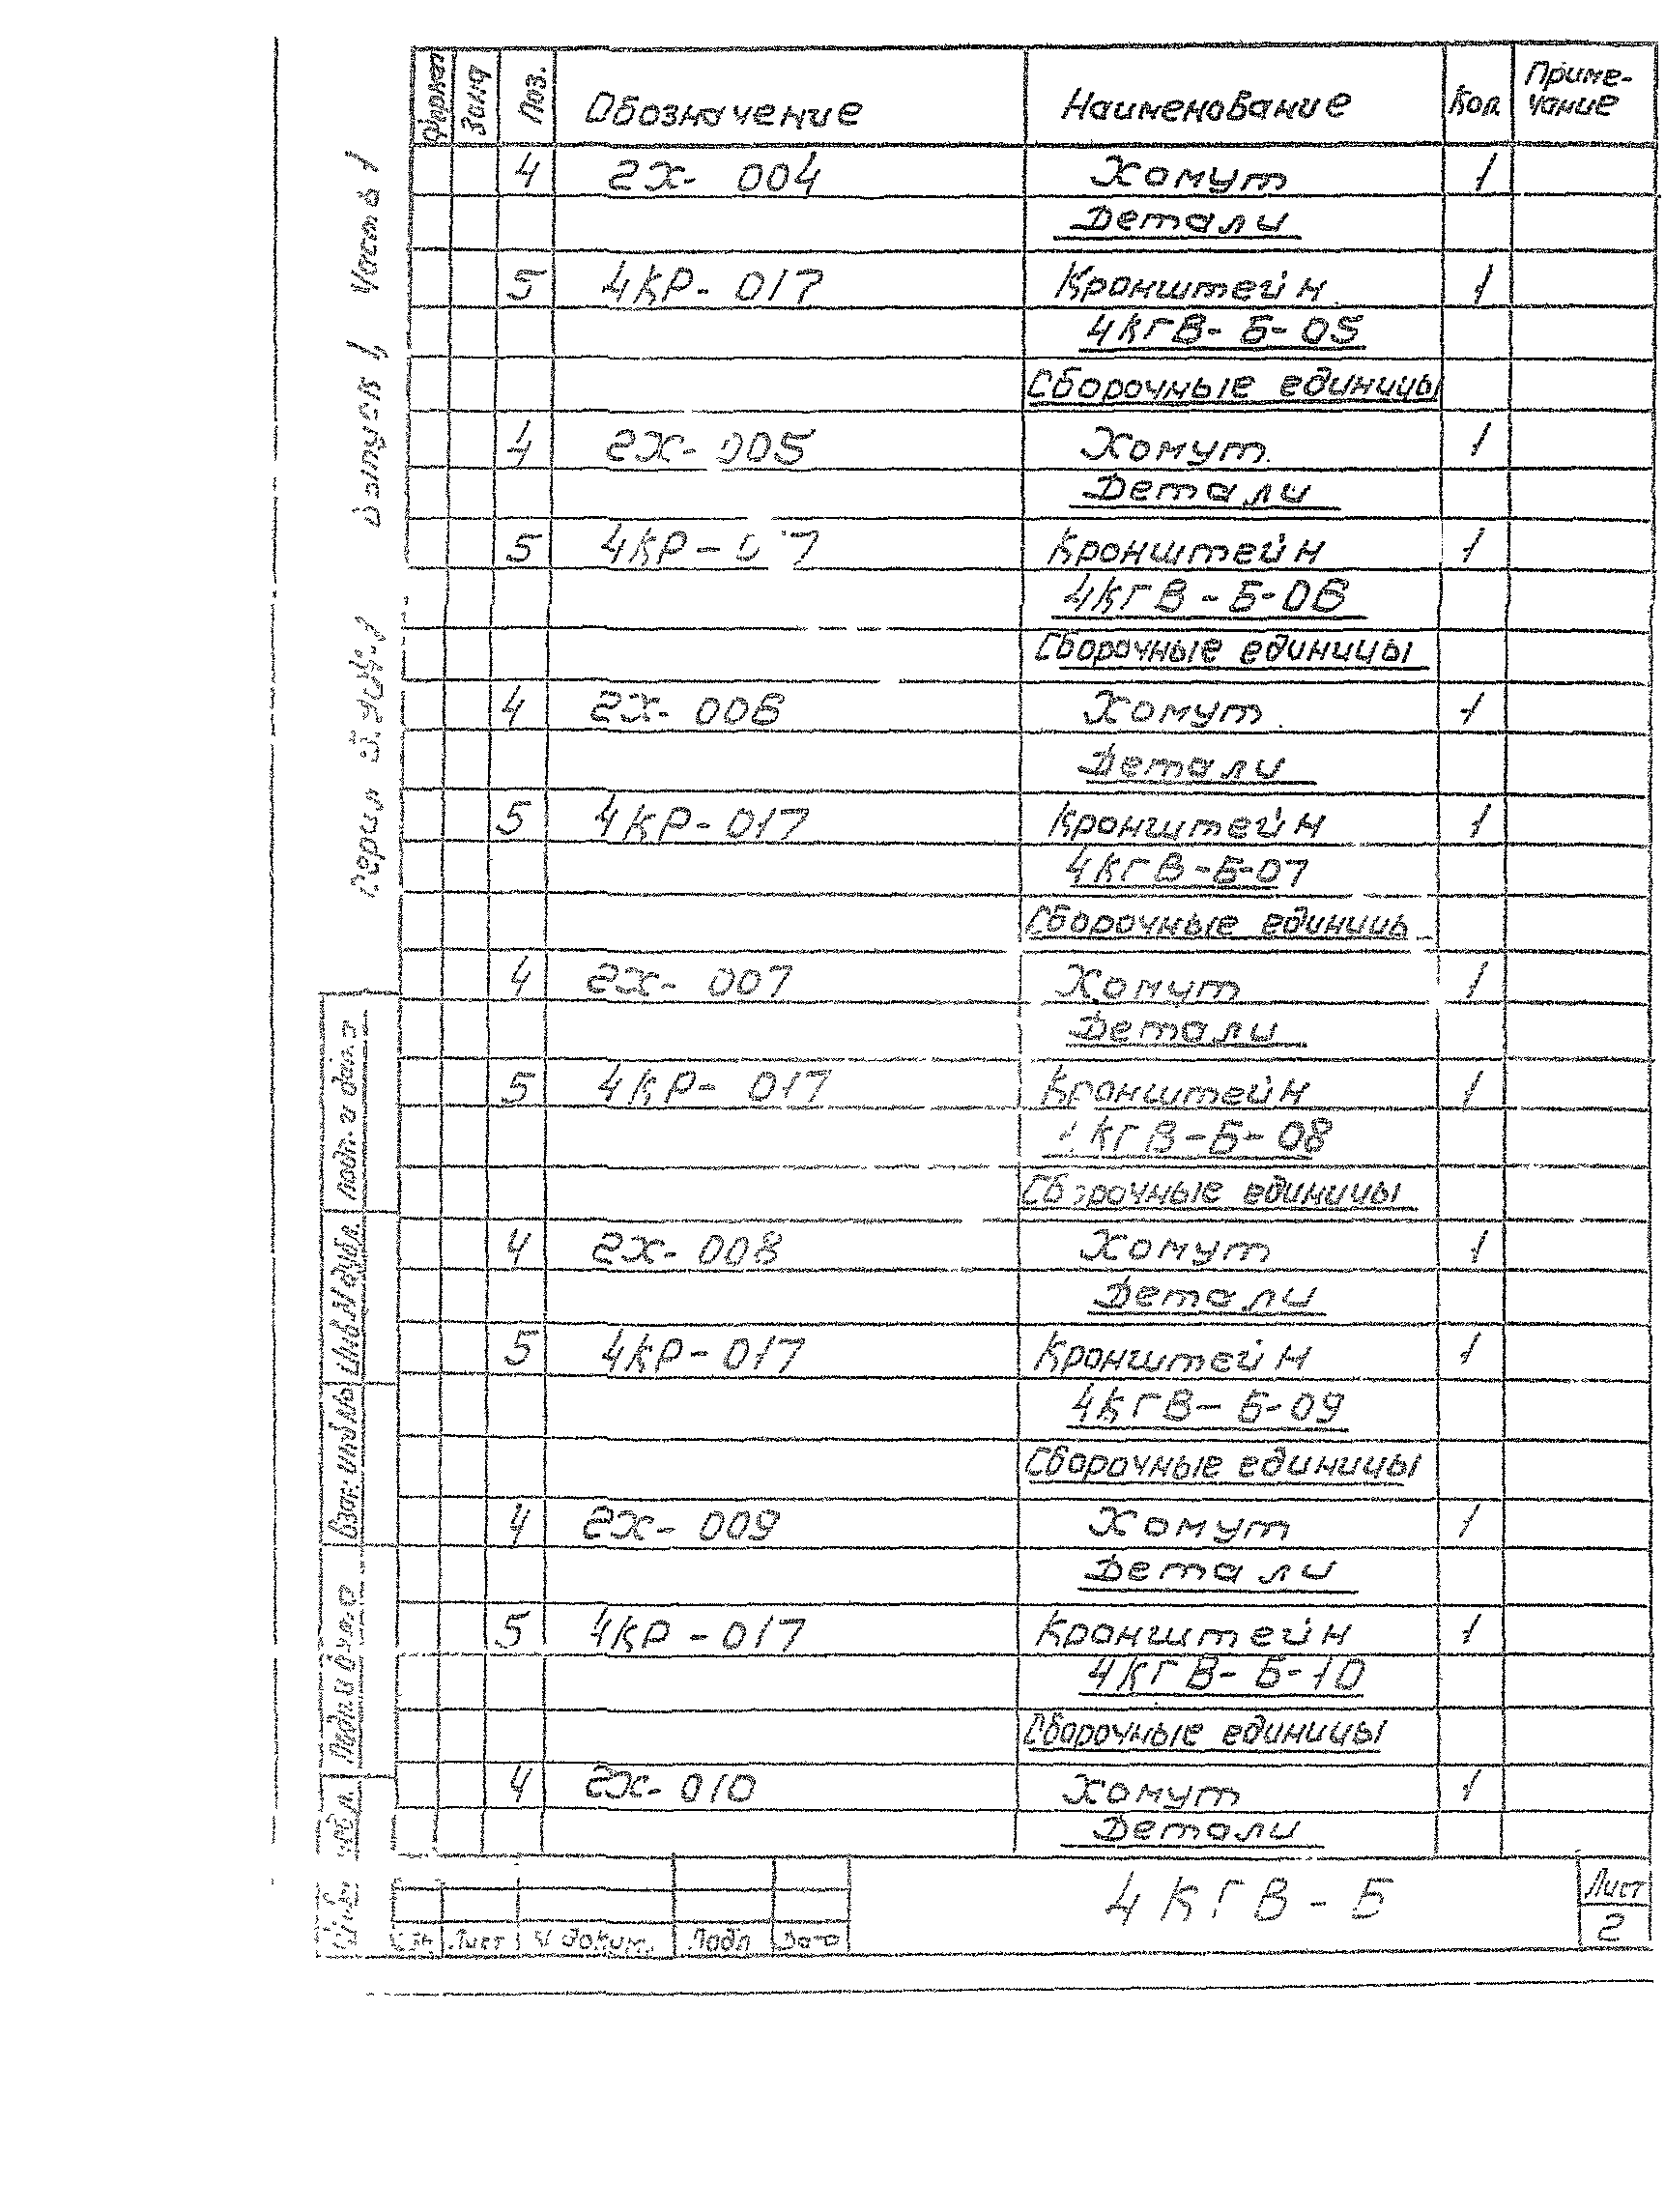 Формат Зона Поз. Обозначение Наименование Кол. Приме-
чание
4 2Х- 004 Хомут 1
Детали
5 4КР- 017 Кронштейн 1
4КГВ- Б-05
Сборочные единицы
4 2Х- 005 Хомут 1
Детали
5 4КР- 017 Кронштейн 1
4КГВ-Б-06
Сборочные единицы
4 2Х- 006 Хомут 1
Детали
5 4КР- 017 Кронштейн 1
4КГВ-Б-07
Сборочные единицы
4 2Х- 007 Хомут 1
Детали
5 4КР- 017 Кронштейн 1
4КГВ-Б-08
Сборочные единицы
4 2Х- 008 Хомут 1
Детали
5 4КР-017 Кронштейн 1
4КГВ- Б-09
Сборочные единицы
4 2Х- 009 Хомут 1
Детали
5 4КР -017 Кронштейн 1
4КГВ- Б-10
Сборочные единицы
4 2Х- 010 Хомут 1
Детали
Лист № докум. Подп Дата
4КГВ-Б
Лист
2
Часть 1
Выпуск 4
Подп. и дата
Инв.№ дубл.
Взам. инв.№
Подп. и дата